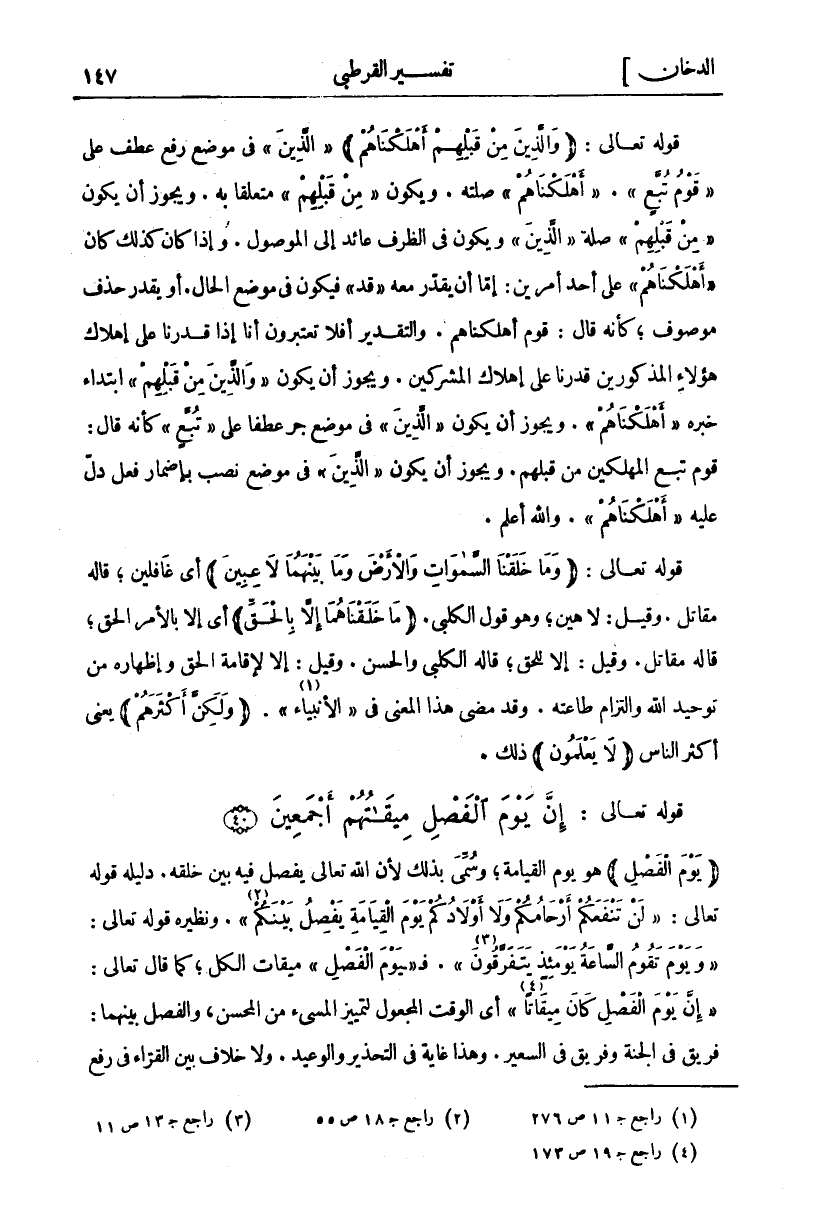 الدخان ] تفسير القرطبي ١٤٧
قوله تعالى : ﴿ وَالَّذِينَ مِنْ قَبْلِهِمْ أَهْلَكْنَاهُمْ ﴾ « الَّذِينَ » فى موضع رفع عطف على
« قَوْمُ تُبَّعٍ » . « أَهْلَكْنَاهُمْ » صلته . ويكون « مِنْ قَبْلِهِمْ » متعلقا به . ويجوز أن يكون
« مِنْ قَبْلِهِمْ » صلة « الَّذِينَ » ويكون فى الظرف عائد إلى الموصول . وإذا كان كذلك كان
«أَهْلَكْنَاهُمْ» على أحد أمرين : إمّا أن يقدّر معه «قد» فيكون فى موضع الحال . أو يقدر حذف
موصوف ؛ كأنه قال : قوم أهلكناهم . والتقدير أفلا تعتبرون أنا إذا قدرنا على إهلاك
هؤلاءِ المذكورين قدرنا على إهلاك المشركين . ويجوز أن يكون « وَالَّذِينَ مِنْ قَبْلِهِمْ » ابتداء
خبره « أَهْلَكْنَاهُمْ » . ويجوز أن يكون « الَّذِينَ » فى موضع جر عطفا على « تُبَّعٍ » كأنه قال :
قوم تبع المهلكين من قبلهم . ويجوز أن يكون « الَّذِينَ » فى موضع نصب بإضمار فعل دلّ
عليه « أَهْلَكْنَاهُمْ » . والله أعلم .
قوله تعالى : ﴿ وَمَا خَلَقْنَا السَّمٰوَاتِ وَالْأَرْضَ وَمَا بَيْنَهُمَا لَاعِبِينَ ﴾ أى غافلين ؛ قاله
مقاتل . وقيل : لاهين ؛ وهو قول الكلبى . ﴿ مَا خَلَقْنَاهُمَا إِلَّا بِالْحَقِّ ﴾ أى إلا بالأمر الحق ؛
قاله مقاتل . وقيل : إلا للحق ؛ قاله الكلبى والحسن . وقيل : إلا لإقامة الحق وإظهاره من
توحيد الله والتزام طاعته . وقد مضى هذا المعنى فى « الأنبياء (١) » . ﴿ وَلَكِنَّ أَكْثَرَهُمْ ﴾ يعنى
أكثر الناس ﴿ لَا يَعْلَمُون ﴾ ذلك .
قوله تعالى : إِنَّ يَوْمَ ٱلْفَصْلِ مِيقَٰتُهُمْ أَجْمَعِينَ ٤٠
﴿ يَوْمَ الْفَصْلِ ﴾ هو يوم القيامة ؛ وسُمِّىَ بذلك لأن الله تعالى يفصل فيه بين خلقه . دليله قوله
تعالى : « لَنْ تَنْفَعَكُمْ أَرْحَامُكُمْ وَلَا أَوْلَادُكُمْ يَوْمَ الْقِيَامَةِ يَفْصِلُ بَيْنَكُمْ (٢) » . ونظيره قوله تعالى :
« وَيَوْمَ تَقُومُ السَّاعَةُ يَوْمَئِذٍ يَتَفَرَّقُونَ (٣) » . فـ«يَوْمَ الْفَصْلِ » ميقات الكل ؛ كما قال تعالى :
« إِنَّ يَوْمَ الْفَصْلِ كَانَ مِيقَاتًا (٤) » أى الوقت المجعول لتمييز المسىء من المحسن ، والفصل بينهما :
فريق فى الجنة وفريق فى السعير . وهذا غاية فى التحذير والوعيد . ولا خلاف بين القرّاء فى رفع
(١) راجع جـ ١١ ص ٢٧٦ (٢) راجع جـ ١٨ ص ٥٥ (٣) راجع جـ ١٣ ص ١١
(٤) راجع جـ ١٩ ص ١٧٣